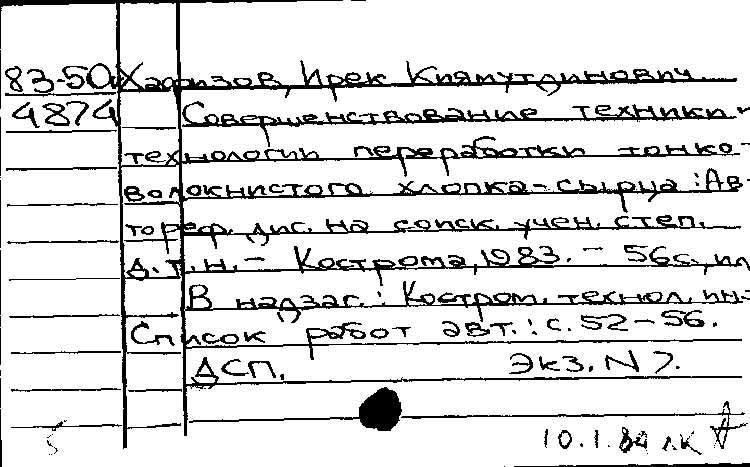 83-50а Хафизов, Ирек Киямутдинович.
4874 Совершенствование техники и
технологии переработки тонко-
волокнистого хлопка-сырца : Ав-
тореф. дис. на соиск. учен. степ.
д.т.н. - Кострома, 1983. - 56с., ил
В надзаг.: Костром. технол. ин-
Список работ авт.: с. 52-56.
ДСП. Экз. N 7.
5 10.1.84 лк